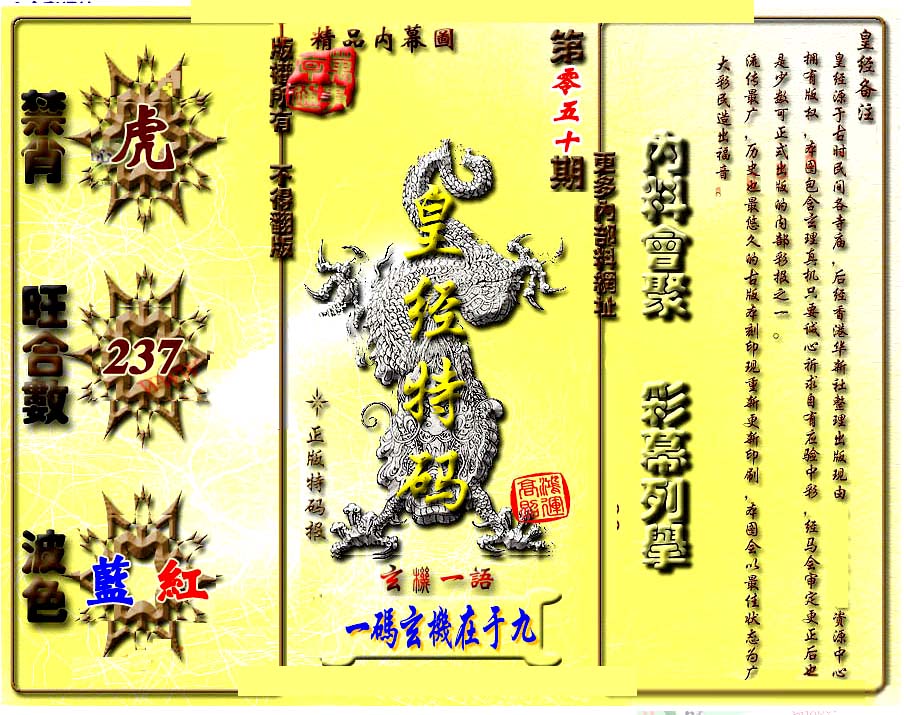 精品内幕圖
第零五十期
版權所有 不得翻版
更多内部料網址
禁肖
虎
旺合數
237
波色
藍 紅
皇经特码
正版特码报
鴻運高照
玄機一語
一碼玄機在于九
内料會聚
彩幕列舉
皇经备注
皇经源于古时民间各寺庙,后经香港华新社整理出版现由 资源中心
拥有版权,本图包含玄理真机只要诚心祈求自有应验中彩,经马会审定更正后也
是少数可正式出版的内部彩报之一。
流传最广,历史也最悠久的古版本刻印现重新更新印刷,本图会以最佳状态为广
大彩民造出福音